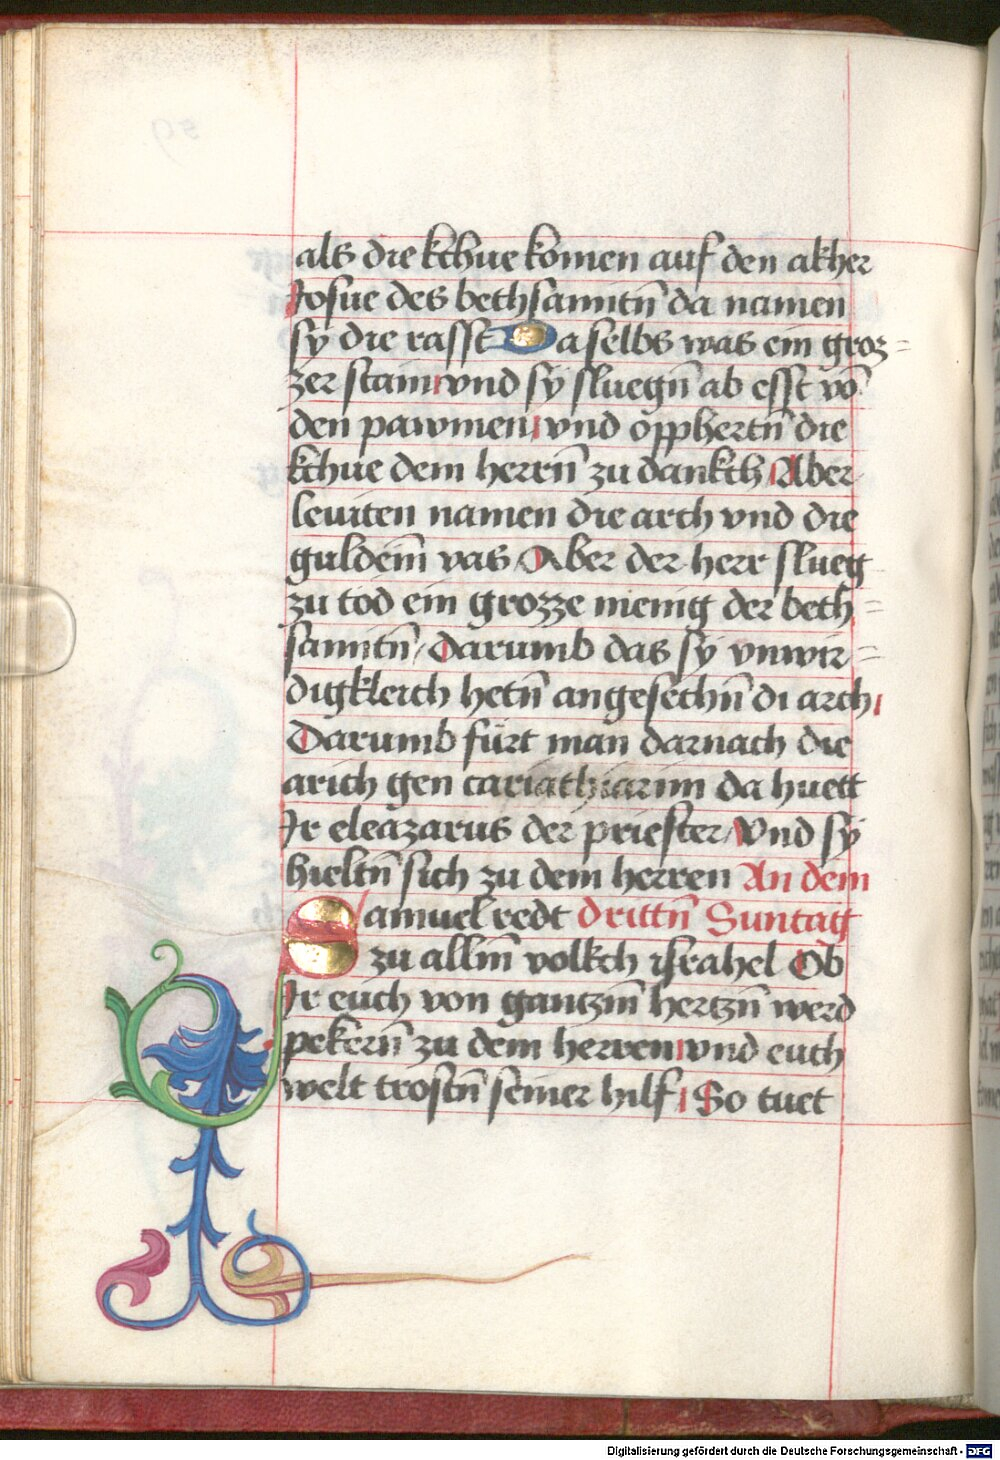 als die kchue komen auf den akher
Josue des bethsamitñ da namen
sÿ die rasst Daselbs was ein groz=
zer stam vnd sÿ sluegñ ab esst võ
den pawmen vnd opphertñ die
kchue dem herrñ zu dankch Aber
leuiten namen die arch vnd die
guldeim̄ vas Aber der herr slueg
zu tod ein grozze menig der beth=
samitñ / darumb das sÿ vnwir=
digkleich hetñ angesechñ di arch
Darumb fürt man darnach die
arich gen cariathiarim da huett
Ir eleazarus der priester Vnd sÿ
hieltñ sich zu dem herren An dem
Samuel redt drittñ Suntag
zu allm̄ volkch israhel Ob
Ir euch von gantzm̄ hertzñ werd
pekerñ zu dem herren vnd euch
welt trostñ seiner hilf So tuet
Digitalisierung gefördert durch die Deutsche Forschungsgemeinschaft - DFG